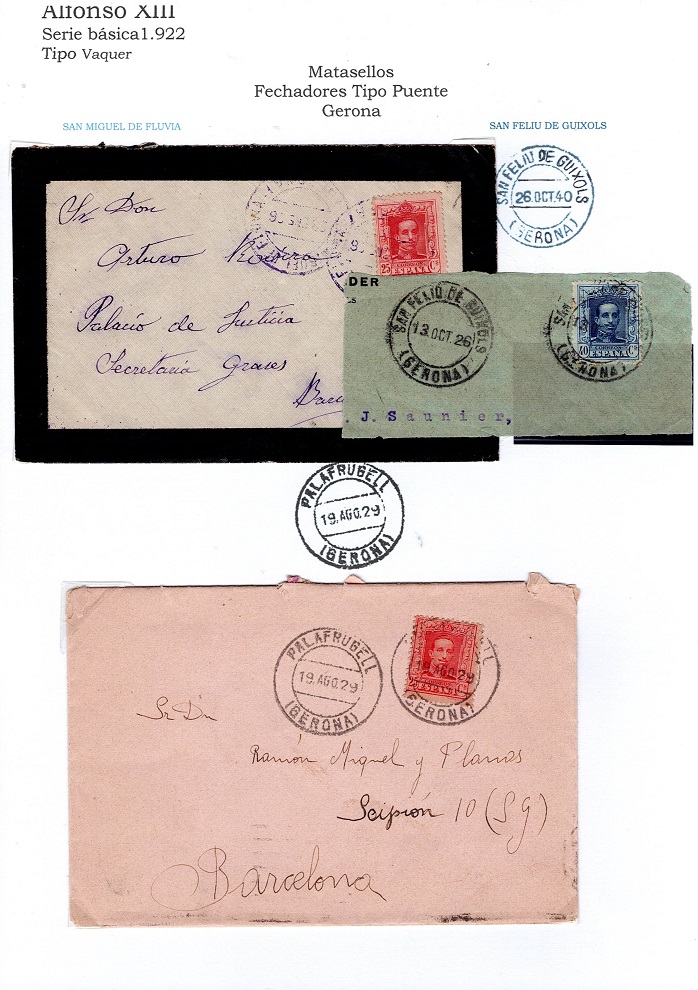 Alfonso XIII
Serie básica1.922
Tipo Vaquer
Matasellos
Fechadores Tipo Puente
Gerona
SAN MIGUEL DE FLUVIA
SAN FELIU DE GUIXOLS
SAN FELIU DE GUIXOLS
26.OCT.40
(GERONA)
Sr. Don
Arturo
Palacio de Justicia
Secretaría
25 CS
ESPAÑA
DER
SAN FELIU DE GUIXOLS
13.OCT.26
(GERONA)
CORREOS
40 CS
ESPAÑA
(GERONA)
. J. Saunier,
PALAFRUGELL
19.AGO.29
(GERONA)
PALAFRUGELL
19.AGO.29
(GERONA)
19.AGO.29
25 CS
ESPAÑA
GERONA)
Sr Dn
Ramón Miquel y Planas
Scipión 10 (S G)
Barcelona